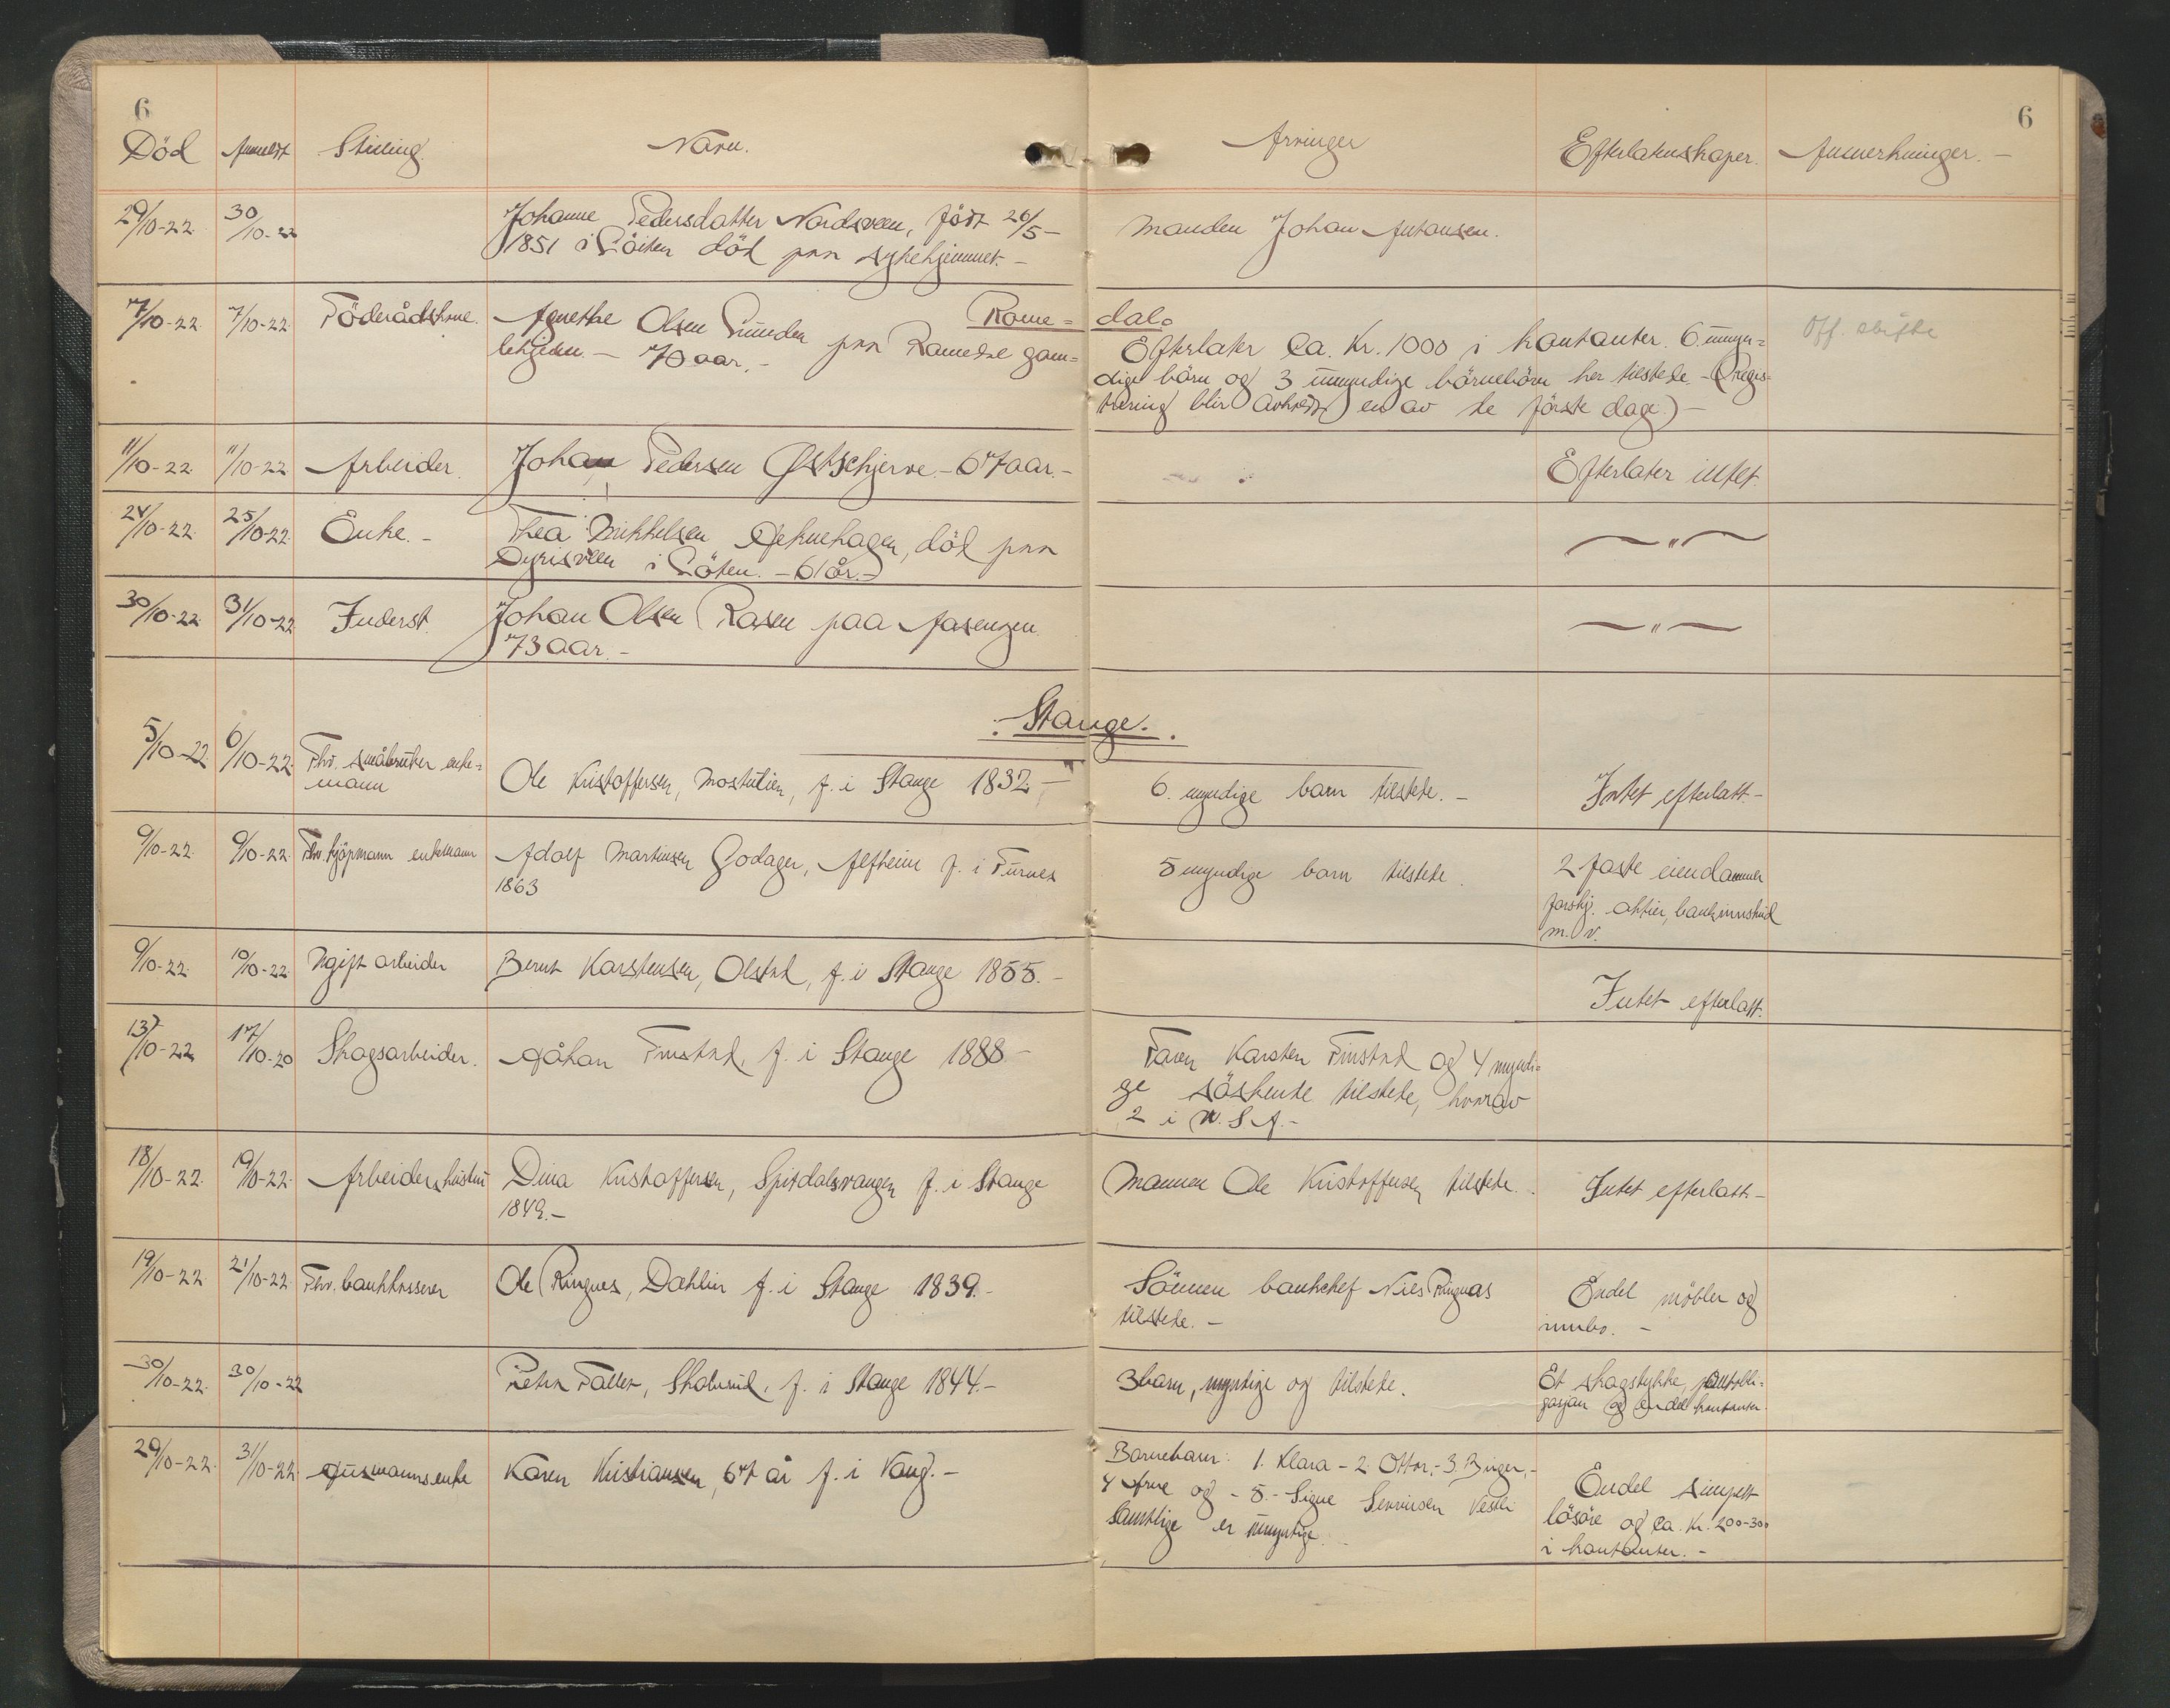 6 6
Död Anmeldt Stilling. Navn. Arvinger Efterlatenskaper. Anmerkninger. -
29/10-22. 30/10-22 Johanne Pedersdatter Nordsveen, født 26/5- Manden Johan Antonsen.
1851 i Löiten död paa sykehjemmet. -
Rome= dal.
7/10-22. 7/10-22. Föderådskone. Agnethe Olsen Grunden paa Ramedse gam= Efterlater ca. Kr. 1000 i kontanter. 6 umyn= Off. skifte
lehjem. - 70 aar. - dige börn og 3 umyndige börnebörn her tilstede. - (Regis=
trering blir avholdt en av de förste dage) -
11/10-22. 11/10-22 Arbeider. Johan Pedersen Østschjerve - 67 aar. - Efterlater intet.
24/10-22. 25/10-22. Enke. - Thea Mikkelsen Gjekuehagen, död paa — " —
Dyrisveen i Löten. - 61 år. -
30/10-22 31/10-22 Inderst. Johan Olsen Rasen paa Aasengen. — " —
73 aar. -
: Stange. .
5/10-22. 6/10-22. Fhv. småbruker enke= Ole Kristoffersen, Mostulien, f. i Stange 1832. - 6. myndige barn tilstede. - Intet efterlatt. -
mann
9/10-22. 9/10-22. Fhv. kjöpmann enkemann Adolf Martinsen Godager, Alfheim f. i Furnes 5 myndige barn tilstede. 2 faste eiendommer
1863 forskj. aktier, bankinnskud
m. v.
9/10-22. 10/10-22. Ugift arbeider Bernt Karstensen, Olstad, f. i Stange 1855. - Intet efterlatt.
13/10-22 17/10-20 Skogsarbeider. Håkan Finstad, f. i Stange 1888 - Faren Karsten Finstad og 4 myndi=
ge söskende tilstede, hvorav
2 i U. S. A. -
18/10-22. 19/10-22. Arbeiderhustru Dina Kristoffersen, Spitdalsvangen f. i Stange Mannen Ole Kristoffersen tilstede. Intet efterlatt -
1849. -
19/10-22. 21/10-22. Fhv. bankkasserer Ole Ringnes, Dahlin f. i Stange 1839. - Sönnen bankchef Nils Ringnæs Endel möbler og
tilstede. - innbo. -
30/10-22. 30/10-22 Petra Faller, Skolerud, f. i Stange 1844. - 3 barn, myndige og tilstede. Et skogstykke, pantobli=
gasjon og endel kontanter.
29/10-22. 31/10-22. Husmannsenke Karen Kristiansen, 67 år f. i Vang. - Barnebarn: 1. Klara - 2. Ottar, - 3. Birger, - Endel simpelt
4 Arne og - 5. - Signe Severinsen Vestli lösöre og ca. Kr. 200-300
samtlige er umyndige. i kontanter. -